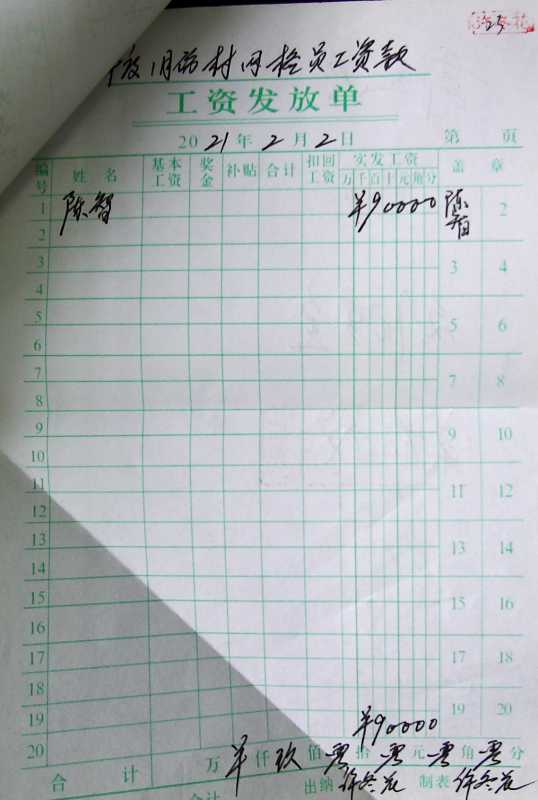 25
1月份村网格员工资款
工资发放单
2021年2月2日 第 页
编号 姓名 基本工资 奖金 补贴 合计 扣回工资 实发工资 万千百十元角分 盖章
1 陈智 ¥90000 陈智 2
2
3 3 4
4
5 5 6
6
7 7 8
8
9 9 10
10
11 11 12
12
13 13 14
14
15 15 16
16
17 17 18
18
19 ¥90000 19 20
20
合计 万 羊 仟 玖 佰 零 拾 零 元 零 角 零 分
出纳 徐冬花 制表 徐冬花